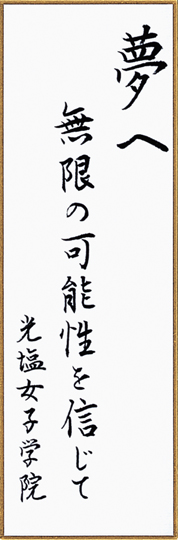 夢へ
無限の可能性を信じて
光塩女子学院